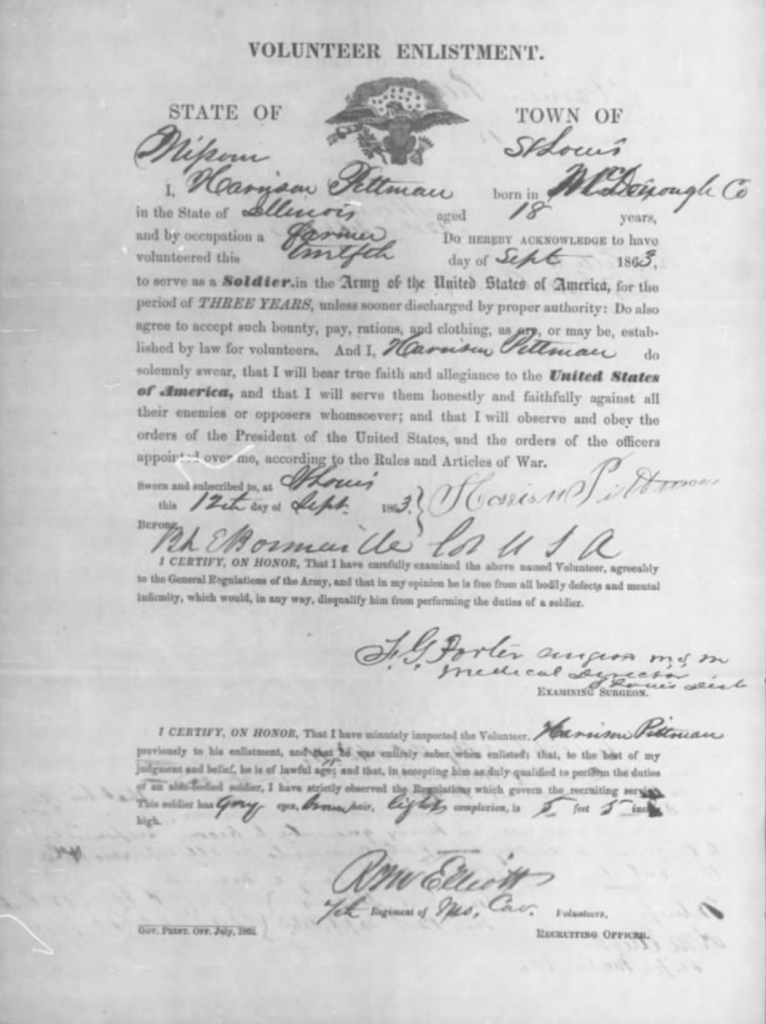 VOLUNTEER ENLISTMENT.
STATE OF TOWN OF
Missouri St Louis
I, Harrison Pittman born in McDonough Co
in the State of Illinois aged 18 years,
and by occupation a farmer Do HEREBY ACKNOWLEDGE to have
volunteered this twelfth day of Sept 1863,
to serve as a Soldier in the Army of the United States of America, for the
period of THREE YEARS, unless sooner discharged by proper authority: Do also
agree to accept such bounty, pay, rations, and clothing, as are, or may be, estab-
lished by law for volunteers. And I, Harrison Pittman do
solemnly swear, that I will bear true faith and allegiance to the United States
of America, and that I will serve them honestly and faithfully against all
their enemies or opposers whomsoever; and that I will observe and obey the
orders of the President of the United States, and the orders of the officers
appointed over me, according to the Rules and Articles of War.
Sworn and subscribed to, at St Louis
this 12th day of Sept. 1863. Harrison Pittman
BEFORE
U S A
I CERTIFY, ON HONOR, That I have carefully examined the above named Volunteer, agreeably
to the General Regulations of the Army, and that in my opinion he is free from all bodily defects and mental
infirmity, which would, in any way, disqualify him from performing the duties of a soldier.
F. G. Porter Surgeon
Medical Director
EXAMINING SURGEON.
I CERTIFY, ON HONOR, That I have minutely inspected the Volunteer, Harrison Pittman
previously to his enlistment, and that he was entirely sober when enlisted; that, to the best of my
judgment and belief, he is of lawful age; and that, in accepting him as duly qualified to perform the duties
of an able-bodied soldier, I have strictly observed the Regulations which govern the recruiting service.
This soldier has Gray eyes, brown hair, light complexion, is 5 feet 5 inches
high.
R M Elliott
7th Regiment of Mo. Cav. Volunteers,
GOV. PRINT. OFF. July, 1862. RECRUITING OFFICER.